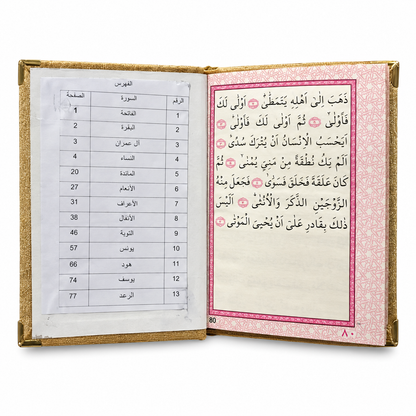 ذَهَبَ اِلٰٓى اَهْلِهٖ يَتَمَطّٰىۜ اَوْلٰى لَكَ
فَاَوْلٰىۙ ثُمَّ اَوْلٰى لَكَ فَاَوْلٰىۜ
اَيَحْسَبُ الْاِنْسَانُ اَنْ يُتْرَكَ سُدًىۜ
اَلَمْ يَكُ نُطْفَةً مِنْ مَنِيٍّ يُمْنٰىۙ ثُمَّ
كَانَ عَلَقَةً فَخَلَقَ فَسَوّٰىۙ فَجَعَلَ مِنْهُ
الزَّوْجَيْنِ الذَّكَرَ وَالْاُنْثٰىۜ اَلَيْسَ
ذٰلِكَ بِقَادِرٍ عَلٰٓى اَنْ يُحْيِيَ الْمَوْتٰى
٨٠
80
الفهرس
الرقم السورة الصفحة
1 الفاتحة 1
2 البقرة 2
3 آل عمران 3
4 النساء 4
5 المائدة 20
6 الأنعام 27
7 الأعراف 31
8 الأنفال 38
9 التوبة 46
10 يونس 57
11 هود 66
12 يوسف 74
13 الرعد 77